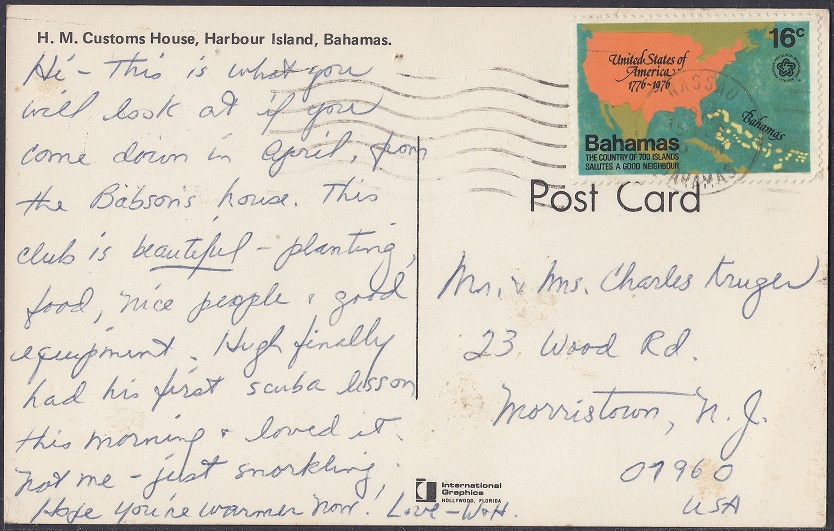 H. M. Customs House, Harbour Island, Bahamas.
Hi - This is what you
will look at if you
come down in April, from
the Babsons house. This
club is beautiful - planting,
food, nice people & good
equipment. Hugh finally
had his first scuba lesson
this morning & loved it.
Not me - just snorkling,
Hope you're warmer now! Love - W & H.
United States of
America
1776-1976
16c
Bahamas
Bahamas
THE COUNTRY OF 700 ISLANDS
SALUTES A GOOD NEIGHBOUR
NASSAU
BAHAMAS
Post Card
Mr. & Mrs. Charles Kruger
23 Wood Rd.
Morristown, N.J.
07960
USA
International
Graphics
HOLLYWOOD, FLORIDA